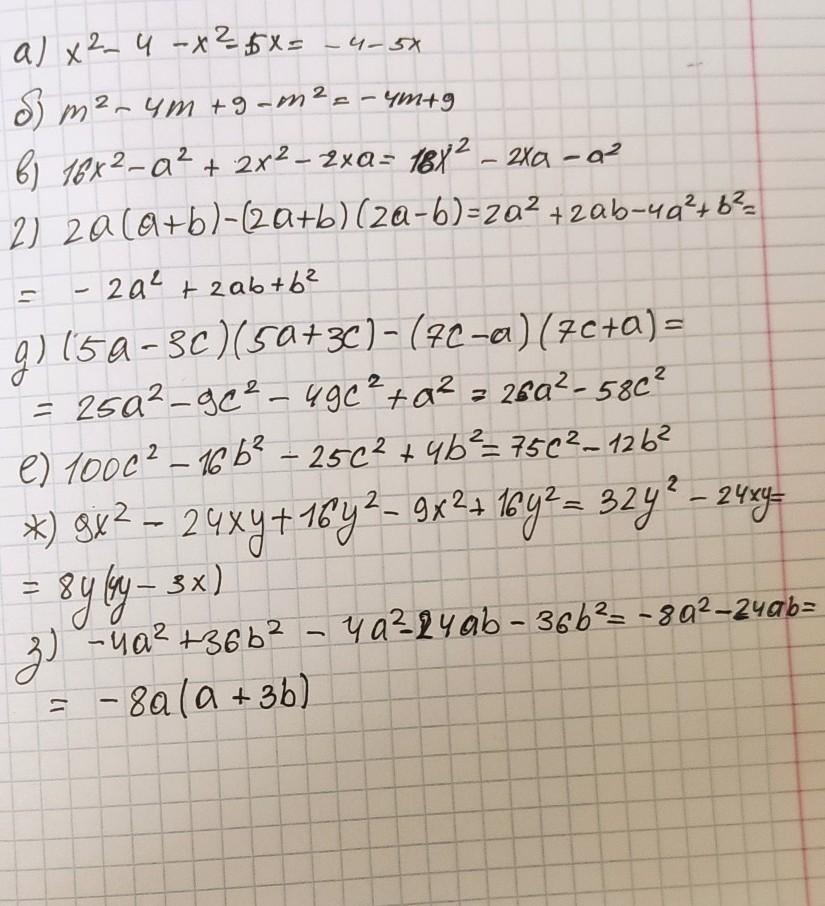 а) x² - 4 - x² - 5x = -4 - 5x
б) m² - 4m + 9 - m² = -4m + 9
в) 16x² - a² + 2x² - 2xa = 18x² - 2xa - a²
г) 2a(a+b) - (2a+b)(2a-b) = 2a² + 2ab - 4a² + b² =
= -2a² + 2ab + b²
д) (5a - 3c)(5a + 3c) - (7c - a)(7c + a) =
= 25a² - 9c² - 49c² + a² = 26a² - 58c²
е) 100c² - 16b² - 25c² + 4b² = 75c² - 12b²
ж) 9x² - 24xy + 16y² - 9x² + 16y² = 32y² - 24xy =
= 8y(4y - 3x)
з) -4a² + 36b² - 4a² - 24ab - 36b² = -8a² - 24ab =
= -8a(a + 3b)